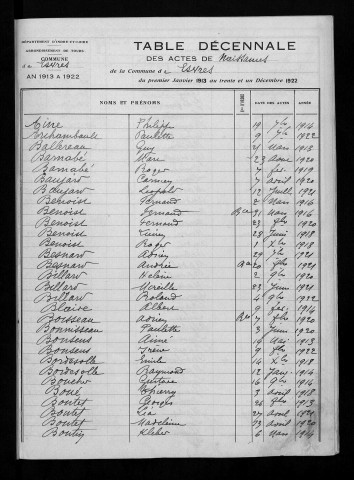 DÉPARTEMENT D'INDRE-ET-LOIRE
ARRONDISSEMENT DE TOURS
COMMUNE
d'Esvres
AN 1913 A 1922
TABLE DÉCENNALE
DES ACTES DE Naissances
de la Commune d'Esvres
du premier Janvier 1913 au trente et un Décembre 1922
NOMS ET PRÉNOMS DATE DES ACTES ANNÉE
Philippe 19 7bre 1914
Archambault Paulette 9 1922
Ballereau Guy 21 Mars 1918
Barnabé Marc 23 Aout 1920
Barnabé Roger 7 fev. 1919
Baujard Carmen 7 avril 1920
Baujard Léopold 12 Juill. 1921
Benoist Fernand 2 Mars 1916
Benoist Fernand 31 Mars 1916
Benoist Fernand 23 1920
Benoist 28 Juin 1918
Benoist Roger 1 Xbre 1918
Besnard Adrien 29 1921
Besnard Andrée 20 1921
Billard Hélène 2 1920
Billard Mireille 23 Juin 1921
Billard Roland 4 1922
Blaive Albert 9 fev. 1914
Boisseau Adrien 7 1920
Bonnisseau Paulette 3 Juin 1920
Bonsens Aimé 14 Mai 1913
Bonsens Irène 9 1922
Bordesolle Emile 14 Xbre 1918
Bordesolle Raymond 12 Janv. 1914
Boucher Gustave 16 1914
Boué Thierry 3 avril 1918
Boutet Georges 26 1913
Boutet 27 avril 1921
Boutet Madeleine 23 avril 1920
Boutin Kléber 6 Mars 1914